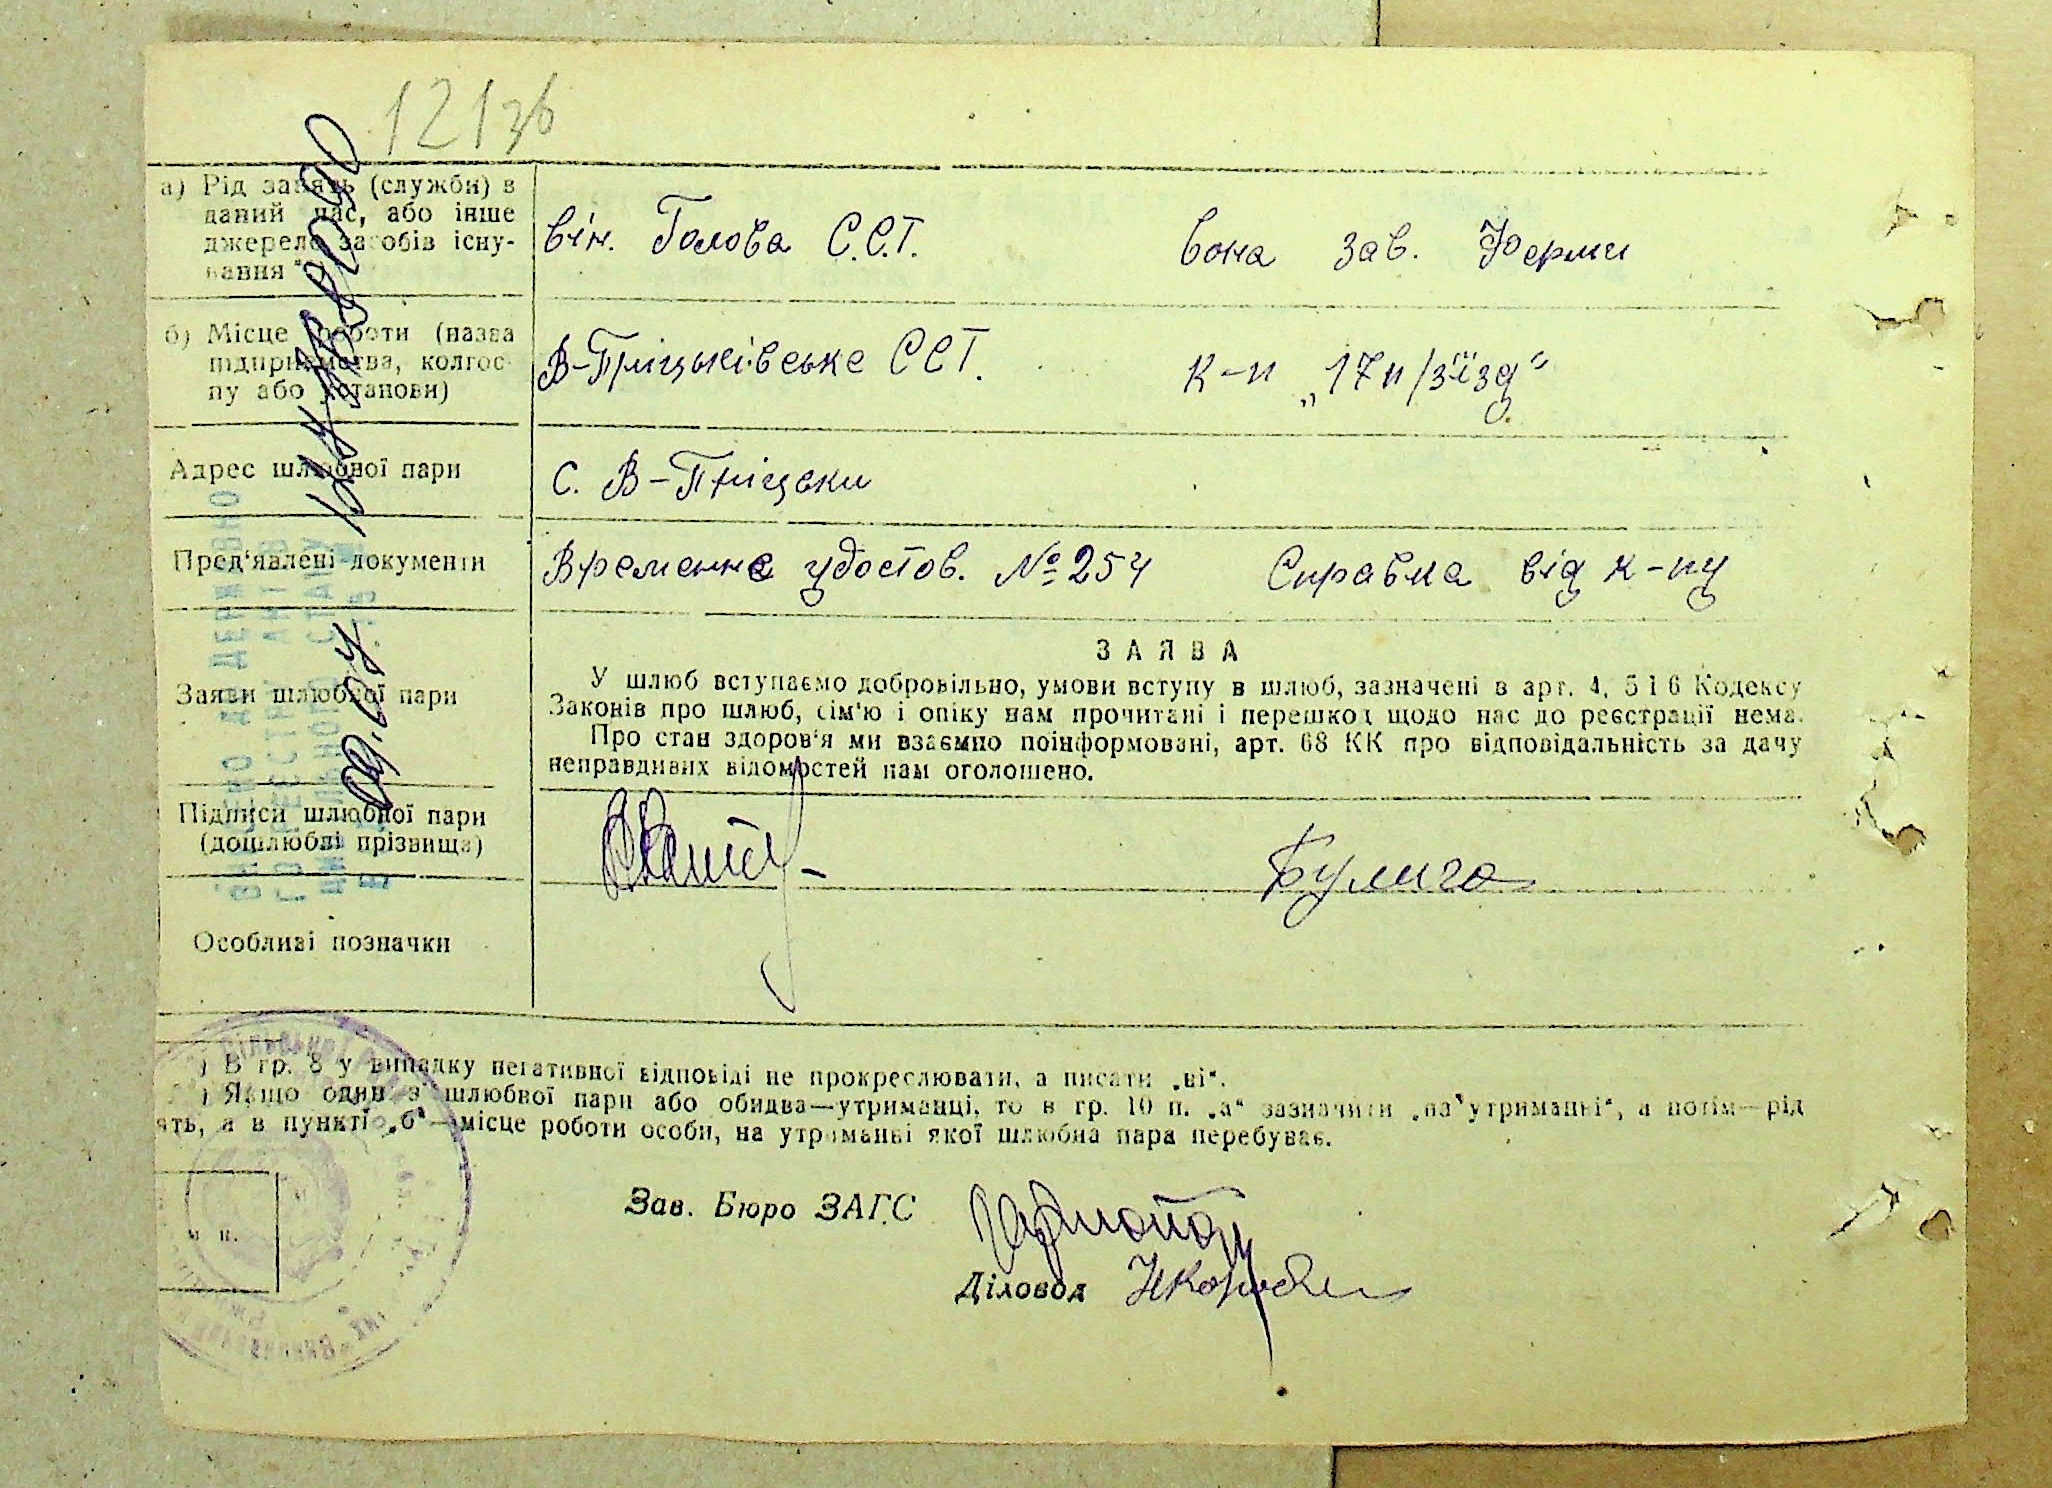 121зв
а) Рід занять (служби) в
даний час, або інше
джерело засобів існу-
вання
він. Голова С.С.Т. вона зав. Ферми
б) Місце роботи (назва
підприємства, колгос-
пу або установи)
В-Пріцьківське ССТ. к-п „17 п/з'їзд“
Адрес шлюбної пари
с. В-Пріцьки
Пред'явлені документи
Временне удостов. №254 Справка від к-пу
Заяви шлюбної пари
ЗАЯВА
У шлюб вступаємо добровільно, умови вступу в шлюб, зазначені в арт. 4, 5 і 6 Кодексу
Законів про шлюб, сім'ю і опіку нам прочитані і перешкод щодо нас до реєстрації нема.
Про стан здоров'я ми взаємно поінформовані, арт. 68 КК про відповідальність за дачу
неправдивих відомостей нам оголошено.
Підписи шлюбної пари
(дошлюбні прізвища)
Булига
Особливі позначки
) В гр. 8 у випадку негативної відповіді не прокреслювати, а писати „ні“.
) Якщо один з шлюбної пари або обидва—утриманці, то в гр. 10 п. „а“ зазначити „на утриманні“, а потім—рід
ять, а в пункті „б“—місце роботи особи, на утриманні якої шлюбна пара перебуває.
м п.
Зав. Бюро ЗАГС
Діловод